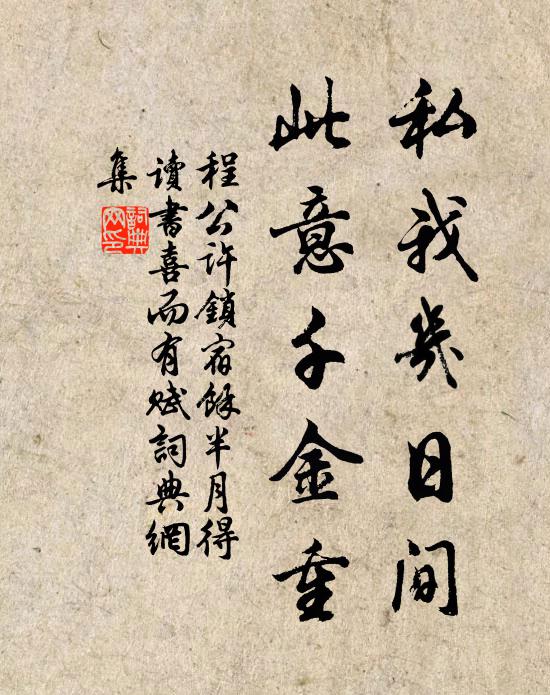 私我幾日間
此意千金重
程公許鎖宿餘半月得
讀書喜而有賦詞典網
集
詞典網印